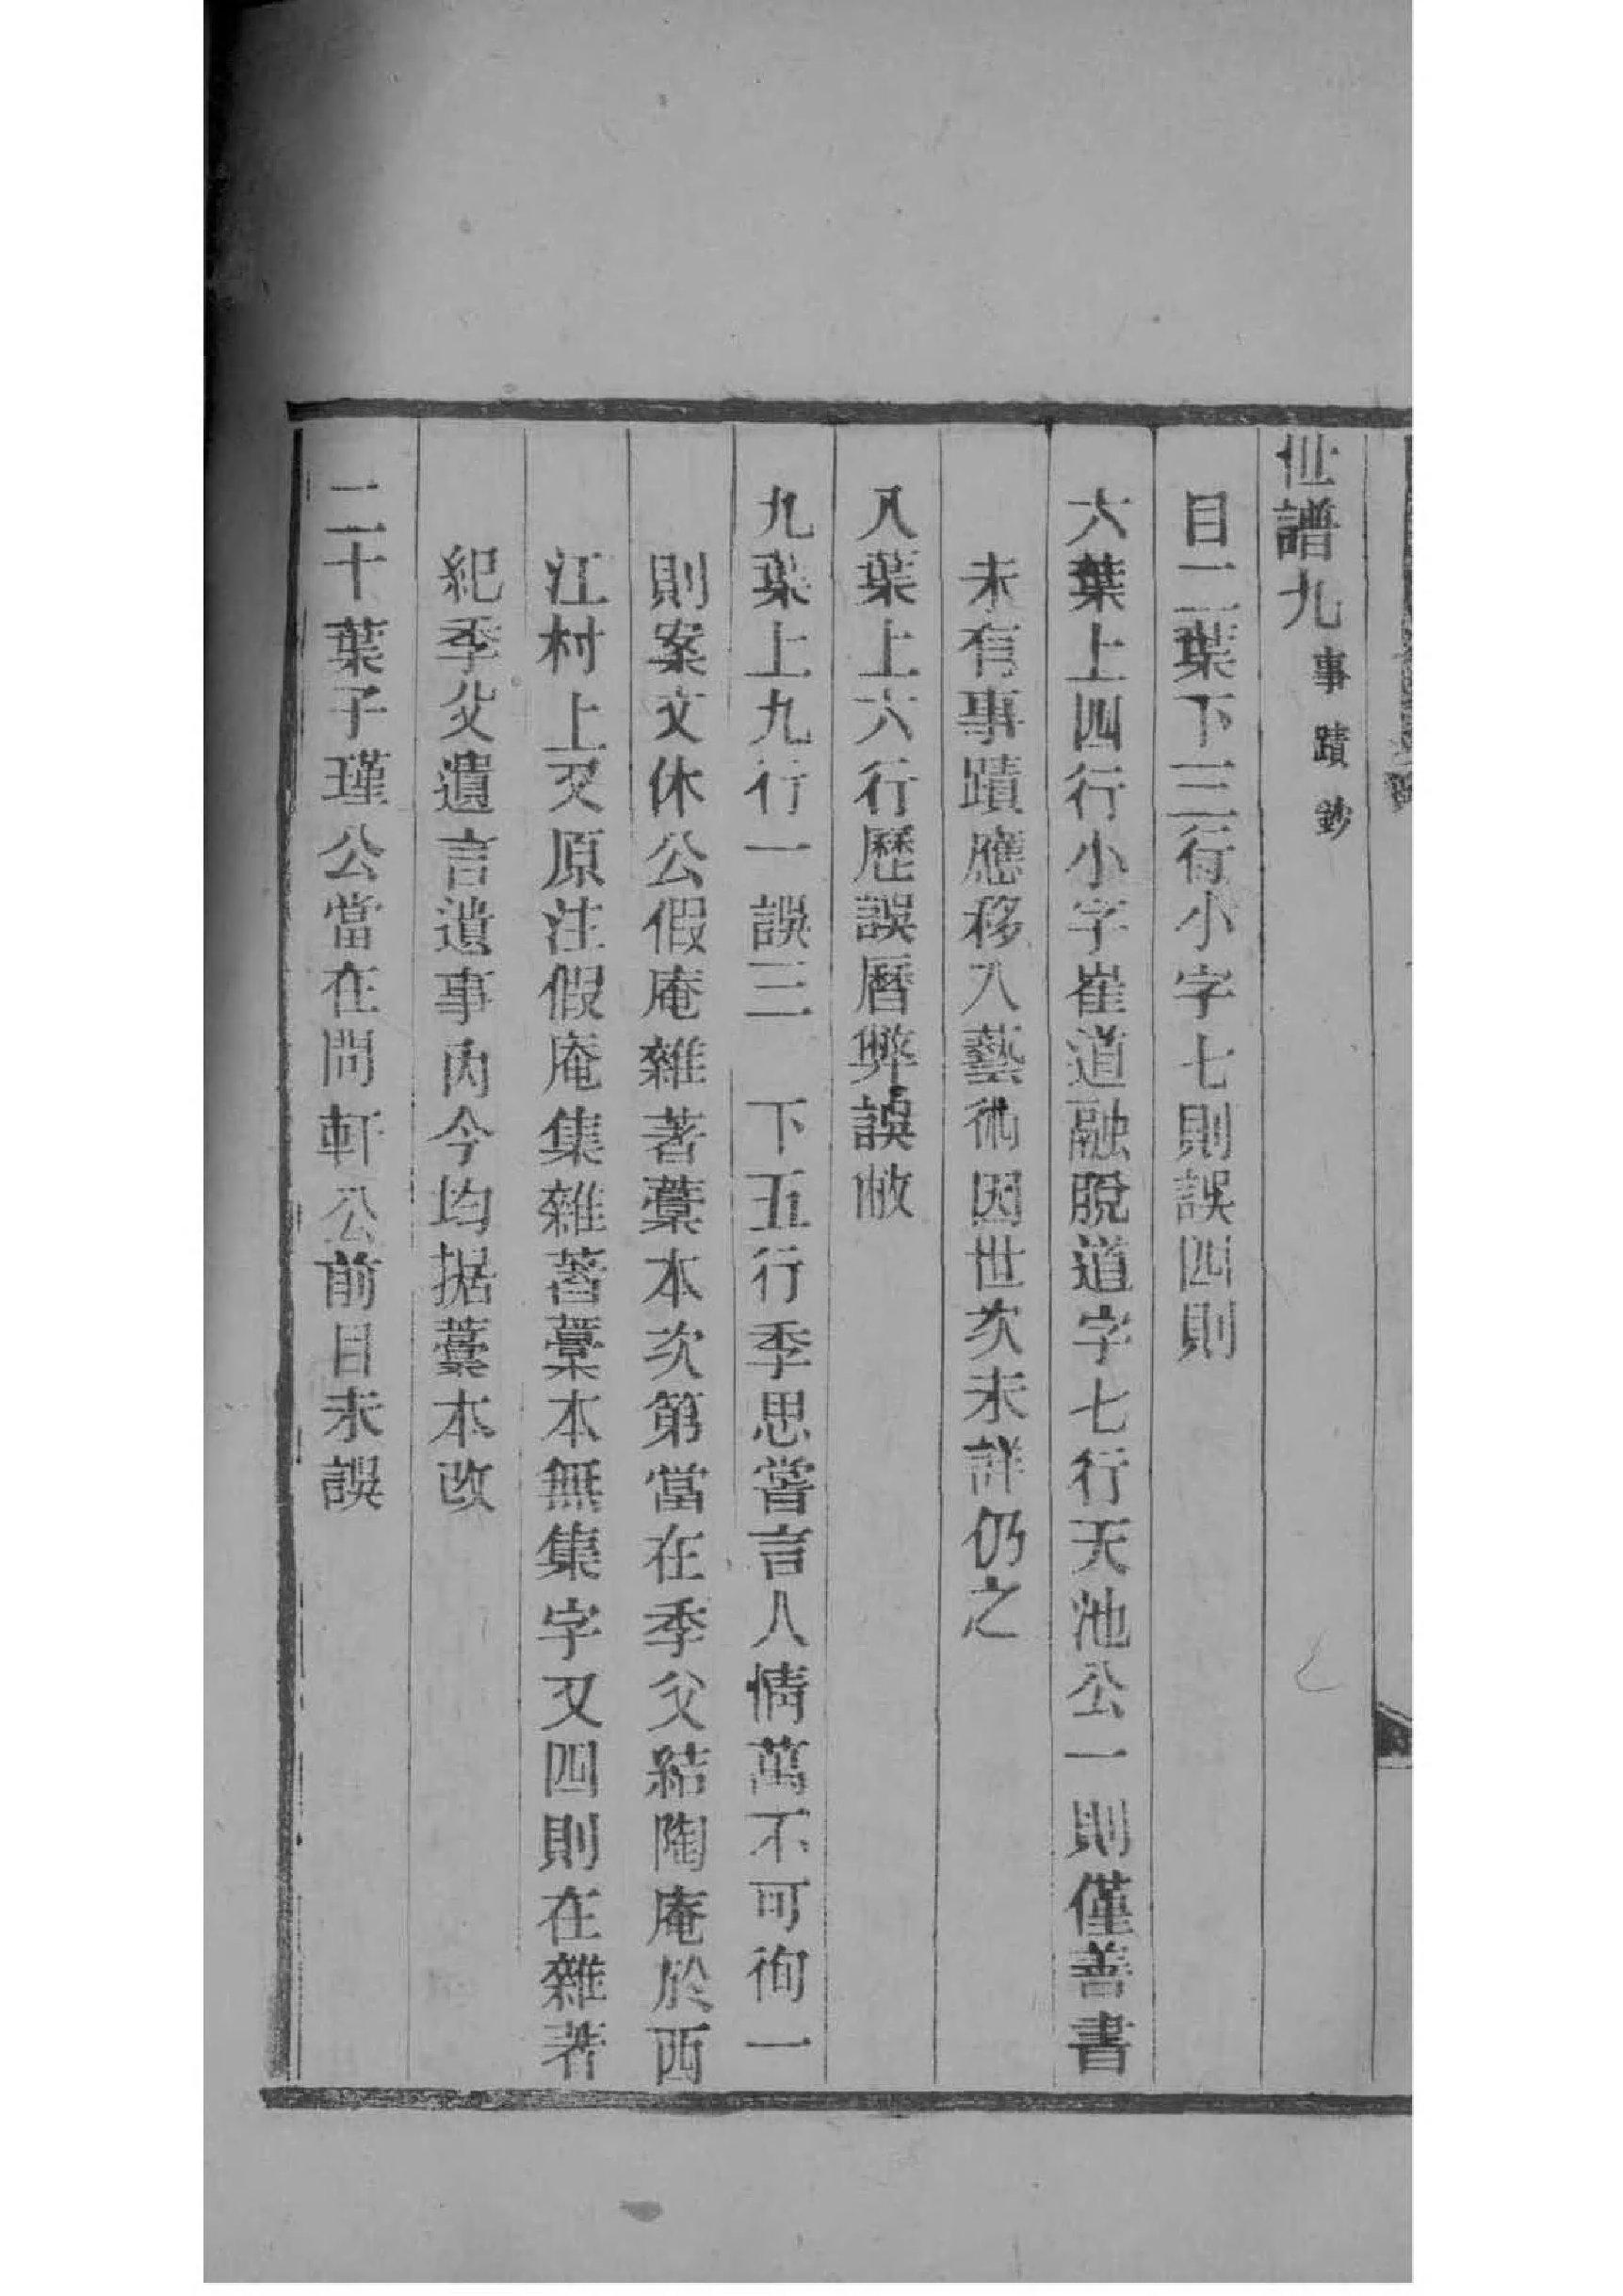 世譜九事蹟鈔
目二葉下三行小字七則誤四則
六葉上四行小字崔道融脫道字七行天池公一則僅善書
未有事蹟應移入藝術因世次未詳仍之
八葉上六行歷誤曆弊誤敝
九葉上九行一誤三　下五行季思嘗言人情萬不可徇一
則案文休公假庵雜著藁本次第當在季父結陶庵於西
江村上又原注假庵集雜著藁本無集字又四則在雜著
紀季父遺言遺事內今均据藁本改
二十葉子瑾公當在問軒公前目未誤